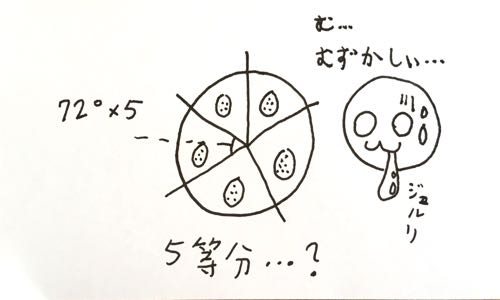 む…
むずかしい…
72°×5
ジュルリ
5等分…?